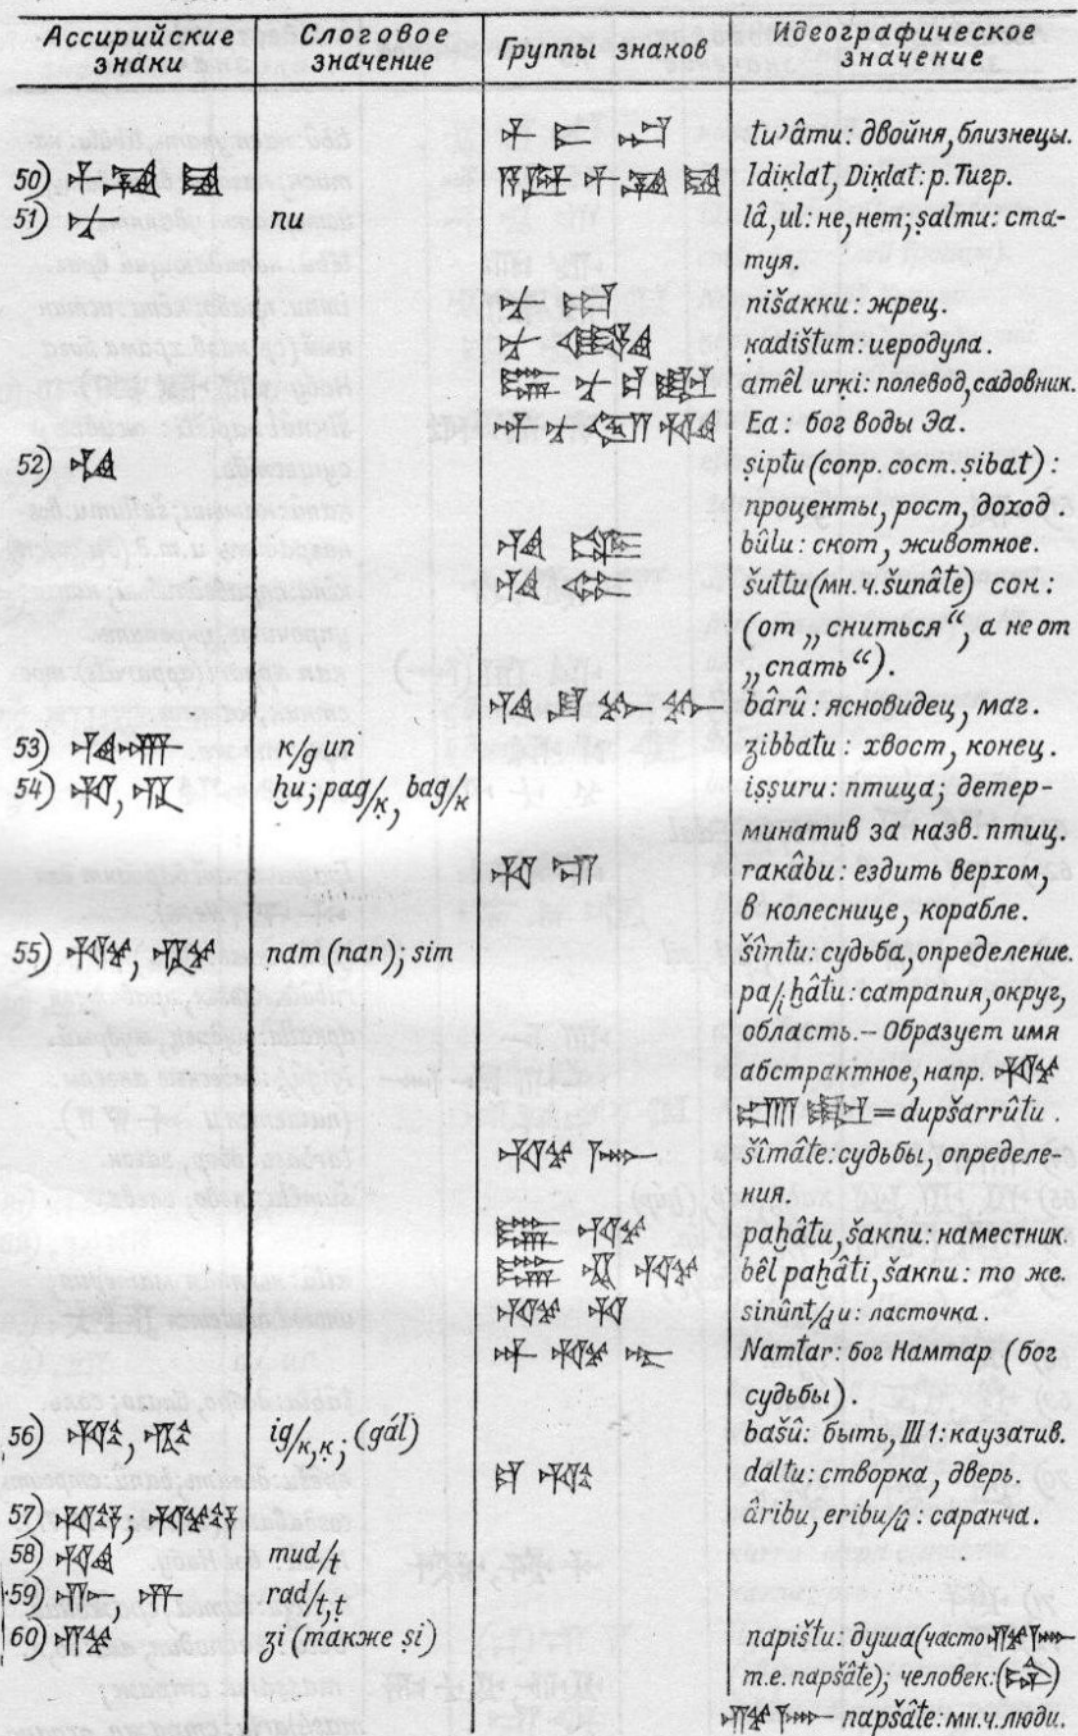 Ассирийские знаки Слоговое значение Группы знаков Идеографическое значение
tu’âmu: двойня, близнецы.
50) Idiḳlat, Diḳlat: р. Тигр.
51) nu lâ, ul: не, нет; ṣalmu: ста-
туя.
nišakku: жрец.
ḳadištum: иеродула.
amêl urḳi: полевод, садовник.
Ea: бог воды Эа.
52) ṣiptu (сопр. сост. ṣibat):
проценты, рост, доход.
bûlu: скот, животное.
šuttu (мн. ч. šunâte) сон:
(от „сниться“, а не от
„спать“).
bârû: ясновидец, маг.
53) k/g un zibbatu: хвост, конец.
54) ḫu; pag/ḳ, bag/k iṣṣuru: птица; детер-
минатив за назв. птиц.
rakâbu: ездить верхом,
в колеснице, корабле.
55) nam (nan); sim šîmtu: судьба, определение.
pa/iḫâtu: сатрапия, округ,
область. – Образует имя
абстрактное, напр.
= dupšarrûtu.
šîmâte: судьбы, определе-
ния.
paḫâtu, šaknu: наместник.
bêl paḫâti, šaknu: то же.
sinûnt/du: ласточка.
Namtar: бог Намтар (бог
судьбы).
56) ig/k,ḳ; (gál) bašû: быть, III 1: каузатив.
daltu: створка, дверь.
57) âribu, eribu/û: саранча.
58) mud/t
59) rad/t,ṭ
60) zi (также ṣi) napištu: душа (часто
т.е. napšâte); человек: ( )
napšâte: мн. ч. люди.